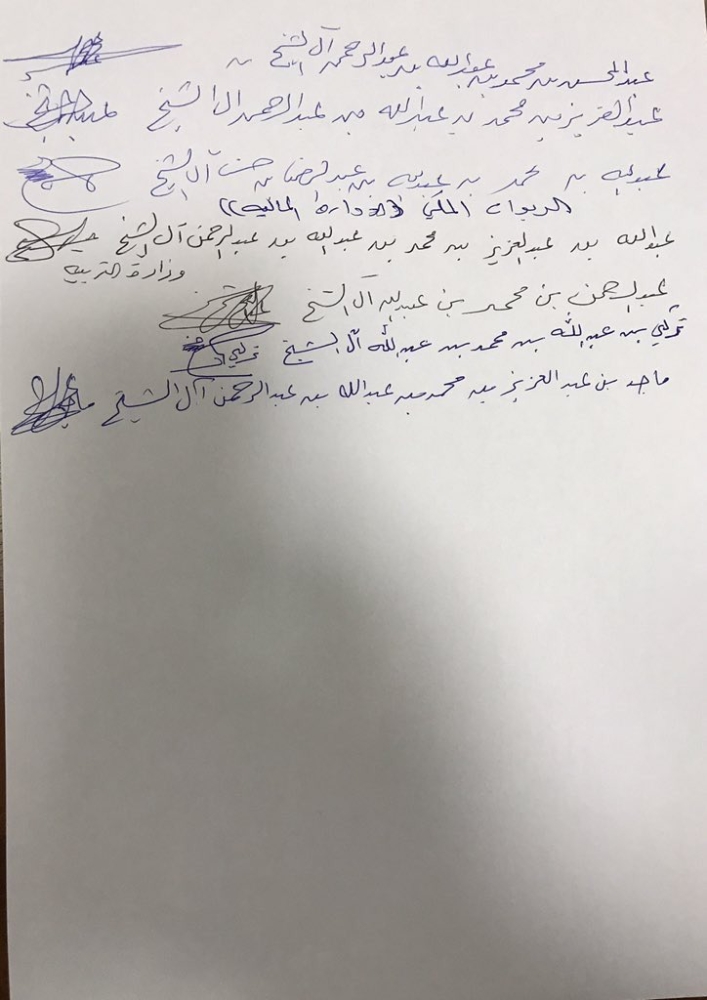 عبدالمحسن بن محمد بن عبدالله بن عبدالرحمن آل الشيخ
عبدالعزيز بن محمد بن عبدالله بن عبدالرحمن ال الشيخ
عبدالله بن محمد بن عبدالله بن عبدالرحمن بن حسن آل الشيخ
الديوان الملكي ((الادارة المالية))
عبدالله بن عبدالعزيز بن محمد بن عبدالله بن عبدالرحمن آل الشيخ
وزارة التربيه
عبدالرحمن بن محمد بن عبدالله آل الشيخ
تركي بن عبدالله بن محمد بن عبدالله آل الشيخ تركي
ماجد بن عبدالعزيز بن محمد بن عبدالله بن عبدالرحمن آل الشيخ